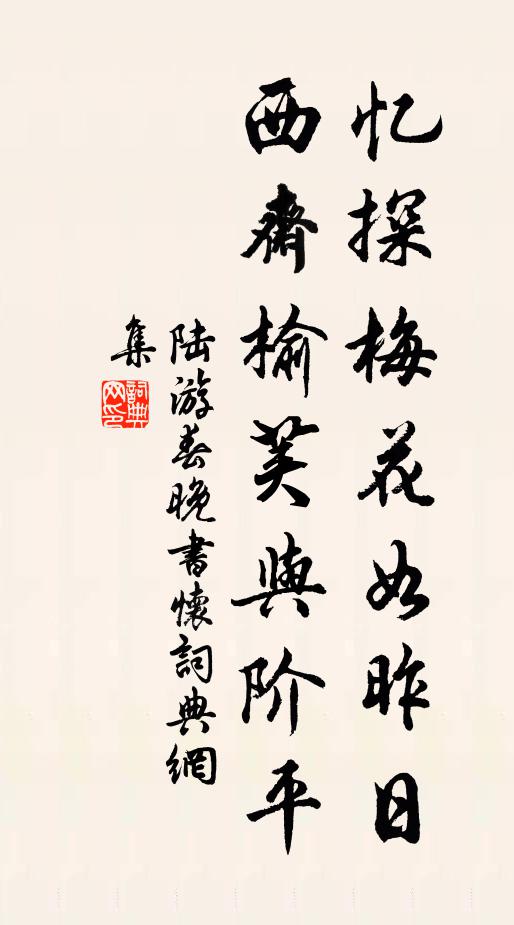 忆探梅花如昨日
西斋榆荚与阶平
陆游春晚书怀詞典網
集
詞典
网印